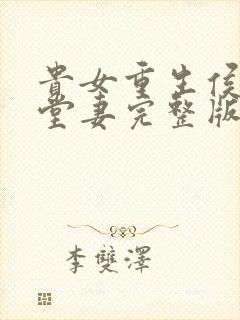 貴女重生侯
堂妻完整版
李雙澤